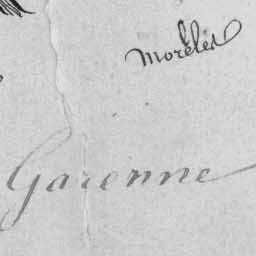 Morêlet
Garenne